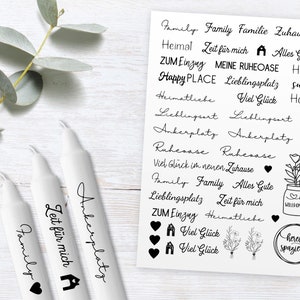 Family Family Familie Zuhause
Heimat Zeit für mich Alles G
ZUM Einzug MEINE RUHEOASE
Happy PLACE Lieblingsplatz
Heimatliebe Viel Glück
Lieblingsort Lieblingsort
Ankerplatz Ankerplatz
Ruheoase Ruheoase
Viel Glück im neuen Zuhause
Family Family Alles Gute
Zeit für mich Lieblingsplatz
MEINE RUHEOASE Viel Glück
ZUM Einzug Heimatliebe
Viel Glück
Viel Glück
Family
Zeit für mich
Ankerplatz